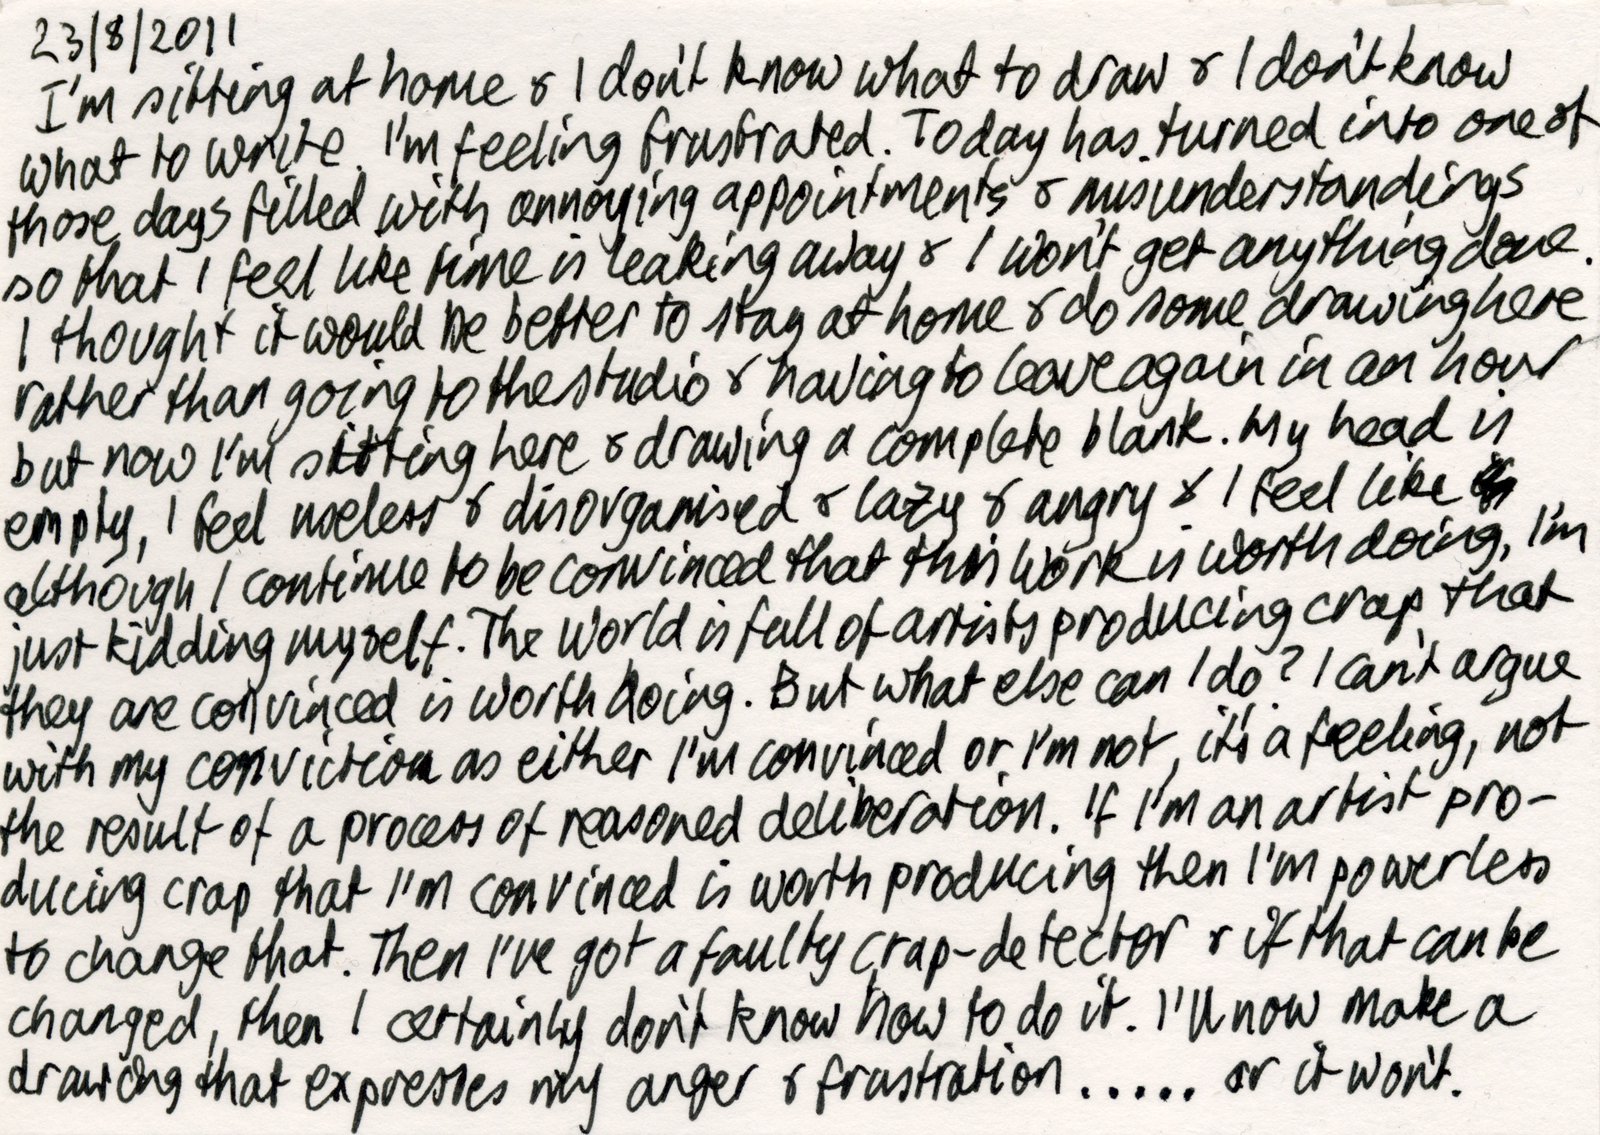 23/8/2011
I'm sitting at home & I don't know what to draw & I don't know
what to write. I'm feeling frustrated. Today has turned into one of
those days filled with annoying appointments & misunderstandings
so that I feel like time is leaking away & I won't get anything done.
I thought it would be better to stay at home & do some drawing here
rather than going to the studio & having to leave again in an hour
but now I'm sitting here & drawing a complete blank. My head is
empty, I feel useless & disorganised & lazy & angry & I feel like
although I continue to be convinced that this work is worth doing, I'm
just kidding myself. The world is full of artists producing crap that
they are convinced is worth doing. But what else can I do? I can't argue
with my conviction as either I'm convinced or I'm not, it's a feeling, not
the result of a process of reasoned deliberation. If I'm an artist pro-
ducing crap that I'm convinced is worth producing then I'm powerless
to change that. Then I've got a faulty crap-detector & if that can be
changed, then I certainly don't know how to do it. I'll now make a
drawing that expresses my anger & frustration..... or it won't.